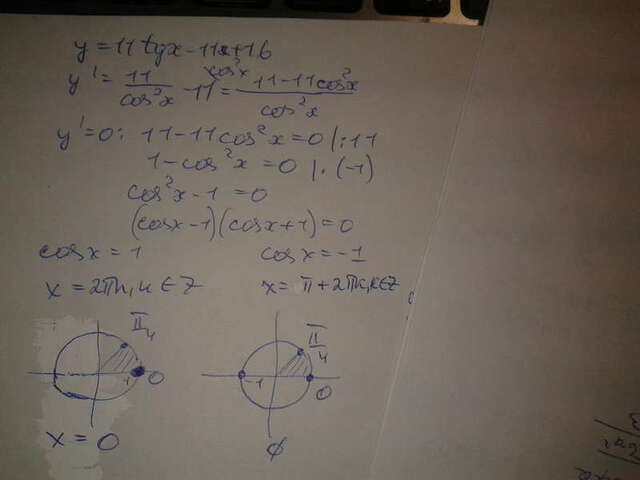 y = 11 tgx - 11x + 16
y' = 11/cos²x - 11 = (11 - 11cos²x)/cos²x
y' = 0: 11 - 11cos²x = 0 |:11
1 - cos²x = 0 |·(-1)
cos²x - 1 = 0
(cosx - 1)(cosx + 1) = 0
cosx = 1 cosx = -1
x = 2πn, n ∈ Z x = π + 2πk, k ∈ Z
π/4 π/4
1 0 -1 0
x = 0 ∅